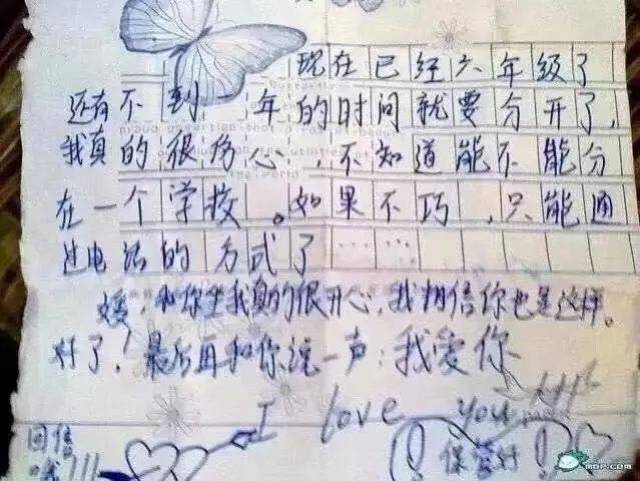 现在已经六年级了
还有不到 年的时间就要分开了,
我真的很伤心,不知道能不能分
在一个学校。如果不巧,只能通
过电话的方式了……
媛,和你坐我真的很开心,我相信你也是这样。
好了!最后再和你说一声:我爱你
I love you
回信
哦!!!
保管好
mop.com